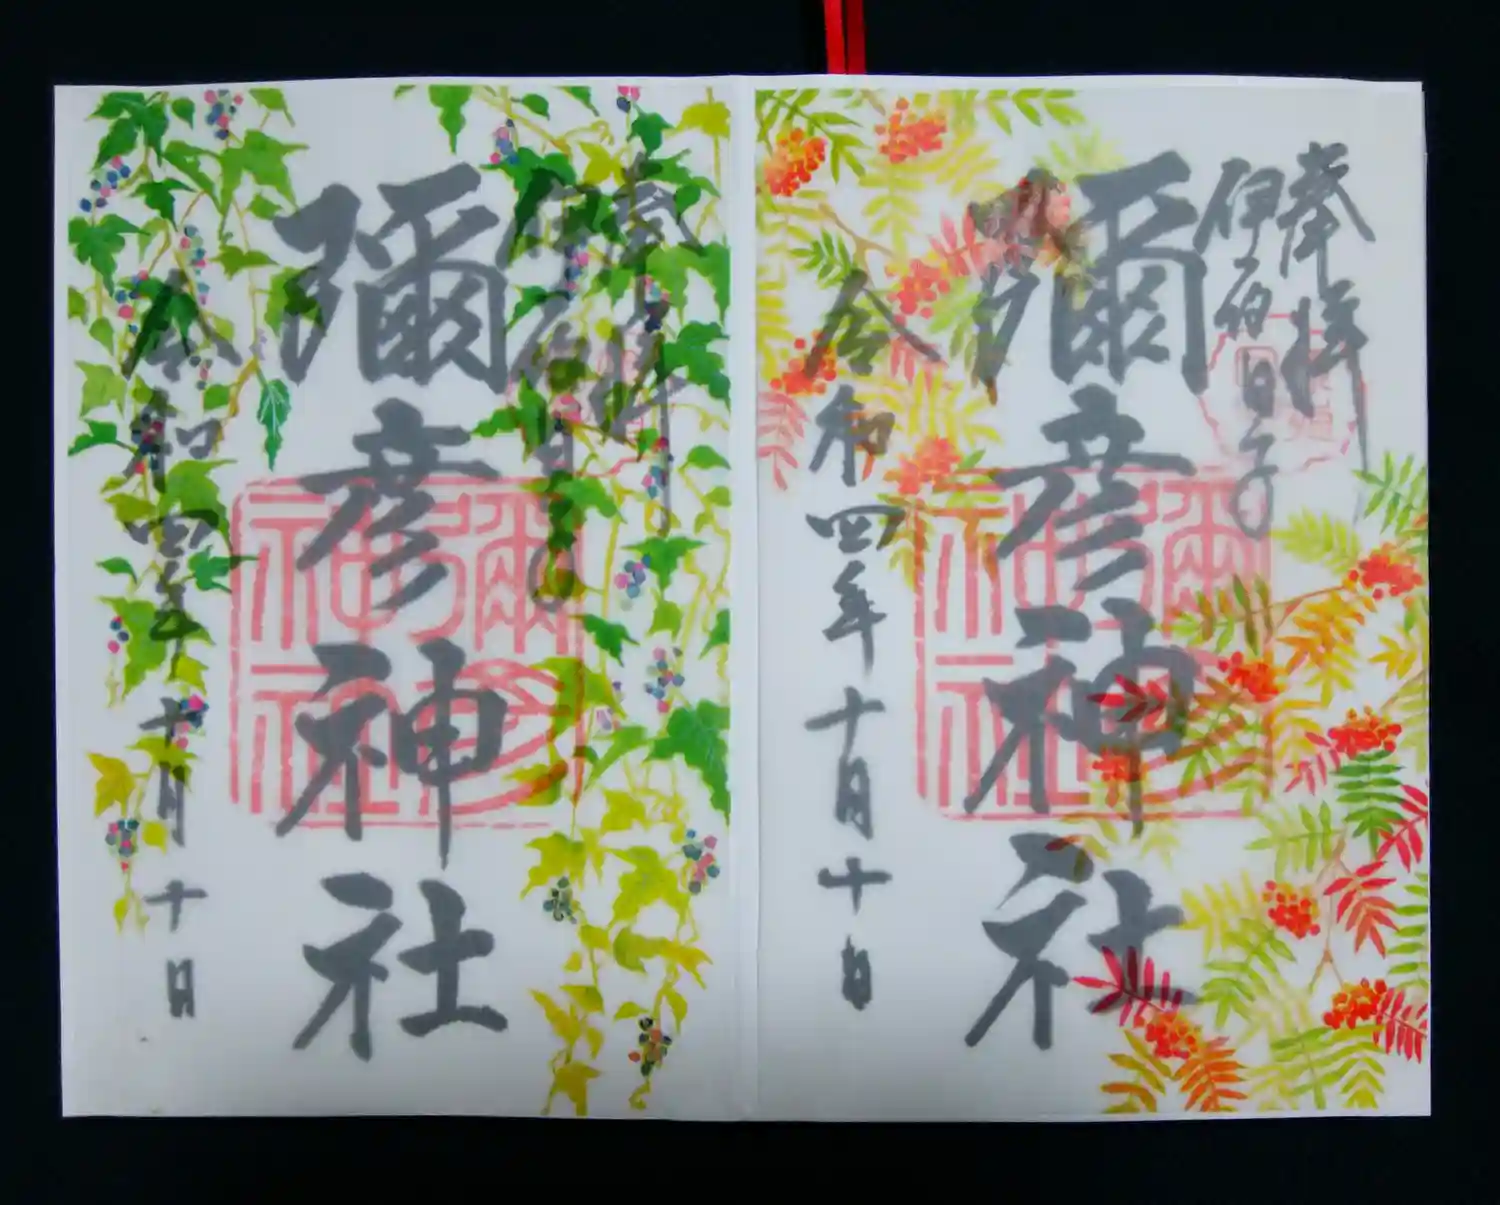 奉拝
伊夜日子
彌彦神社
令和四年十月十日
彌彦神社
奉拝
伊夜日子
彌彦神社
令和四年十月十日
彌彦神社